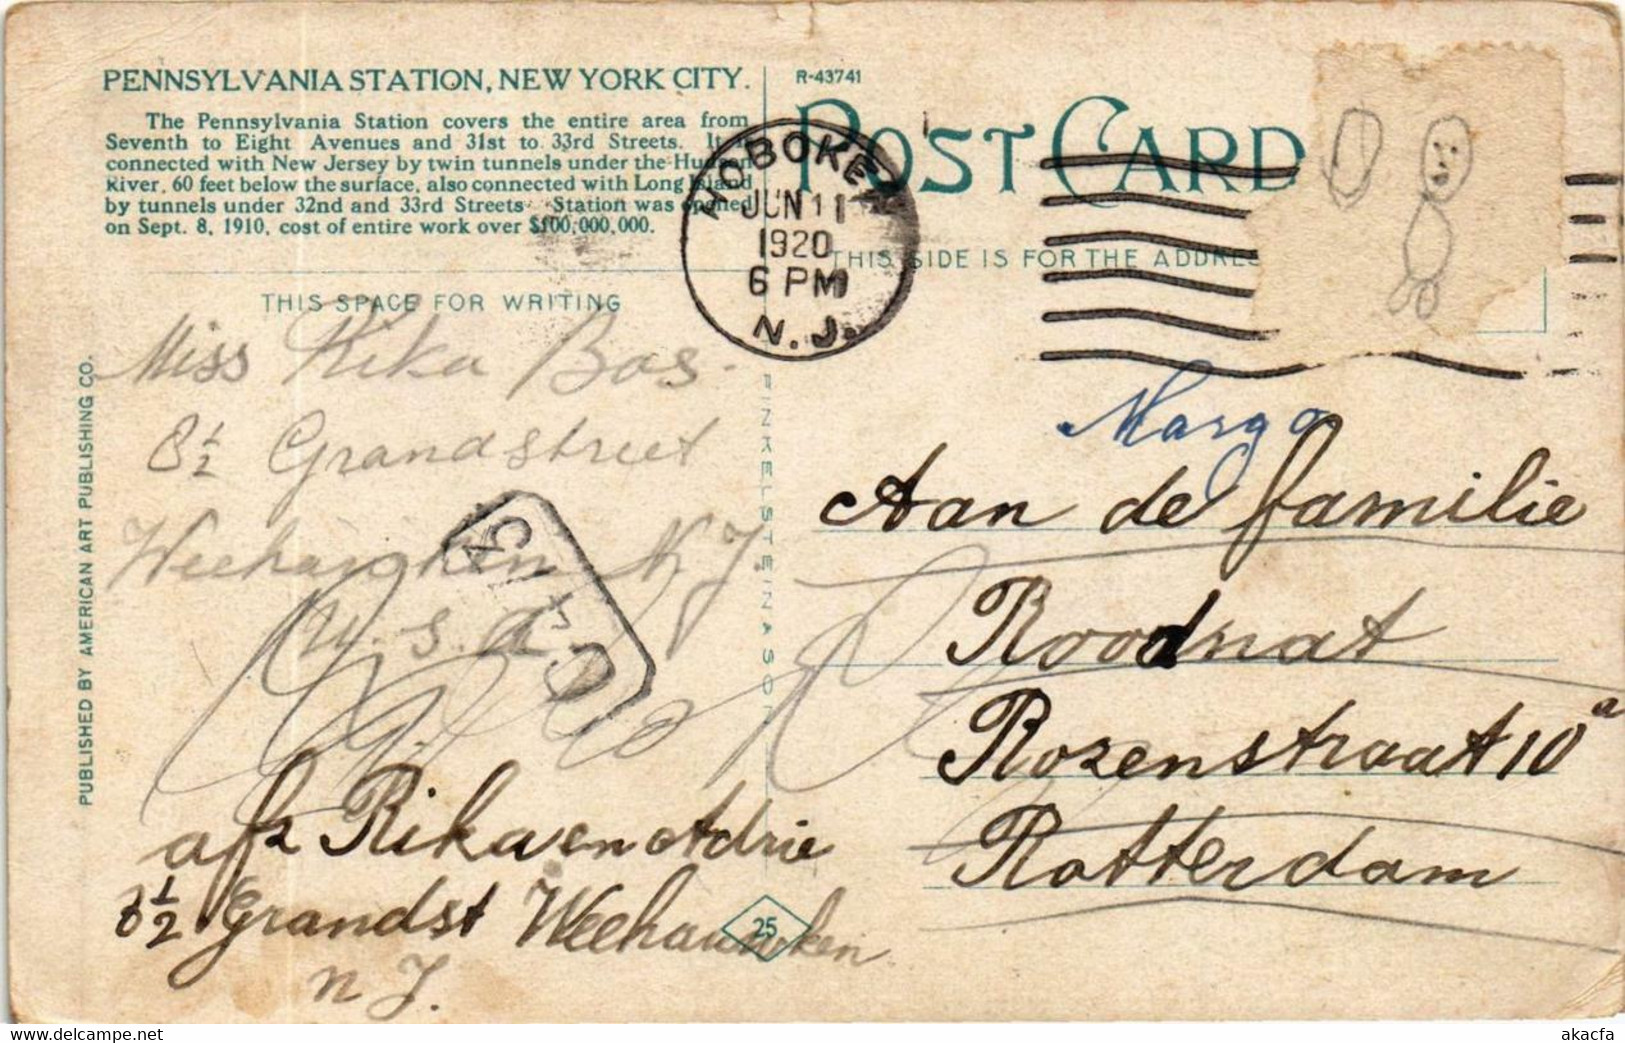 PENNSYLVANIA STATION, NEW YORK CITY.
The Pennsylvania Station covers the entire area from
Seventh to Eight Avenues and 31st to 33rd Streets. It
connected with New Jersey by twin tunnels under the Hudson
River, 60 feet below the surface, also connected with Long Island
by tunnels under 32nd and 33rd Streets Station was opened
on Sept. 8, 1910, cost of entire work over $100,000,000.
THIS SPACE FOR WRITING
R-43741
POST CARD
THIS SIDE IS FOR THE ADDRES
HOBOKEN
JUN 11
1920
6 PM
N.J.
Miss Rika Bos.
8½ Grandstreet
Weehawken N.J.
U.S.A.
afz Rika en Adrie
8½ Grandst Weehauwken
N J.
Margo
Aan de familie
Roodnat
Rozenstraat 10a
Rotterdam
PUBLISHED BY AMERICAN ART PUBLISHING CO.
FINKELSTEIN & SON
25
akacfa